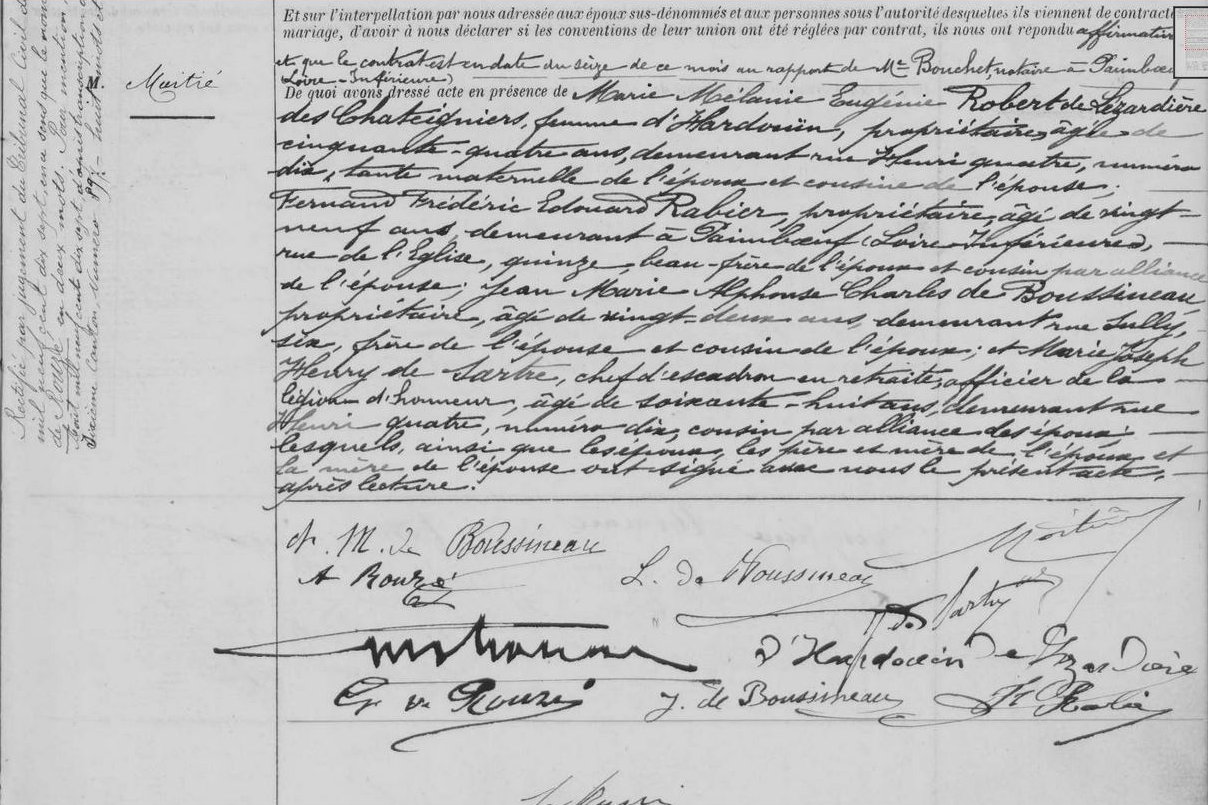 Et sur l'interpellation par nous adressée aux époux sus-dénommés et aux personnes sous l'autorité desquelles ils viennent de contracte
mariage, d'avoir à nous déclarer si les conventions de leur union ont été réglées par contrat, ils nous ont repondu affirmativ
et que le contrat est en date du seize de ce mois au rapport de Me Bouchet, notaire à Paimbœu
(Loire-Inférieure)
De quoi avons dressé acte en présence de Marie Mélanie Eugénie Robert de Lézardière
des Chateigniers, femme d'Hardouïn, propriétaire, âgée de
cinquante-quatre ans, demeurant rue Henri quatre, numéro
dix, tante maternelle de l'époux et cousine de l'épouse;
Fernand Frédéric Edouard Rabier, propriétaire, âgé de vingt-
neuf ans, demeurant à Paimbœuf (Loire-Inférieure),
rue de l'Eglise, quinze, beau-frère de l'époux et cousin par alliance
de l'épouse; Jean Marie Alphonse Charles de Boussineau
propriétaire, âgé de vingt-deux ans, demeurant rue Sully,
six, frère de l'épouse et cousin de l'époux; et Marie Joseph
Henry de Sartre, chef d'escadron en retraite, officier de la
légion d'honneur, âgé de soixante-huit ans, demeurant rue
Henri quatre, numéro dix, cousin par alliance des époux;
lesquels, ainsi que les époux, les père et mère de l'époux et
la mère de l'épouse ont signé avec nous le présent acte,
après lecture.
M. de Boussineau
A Rouzé
L. de Boussineau
d'Hardouin de Lézardière
Rouzé
J. de Boussineau
M.
Rectifié par jugement du Tribunal Civil de
mil neuf cent dix sept, en ce sens que le nom
de Rouzé en deux mots. Pour mention